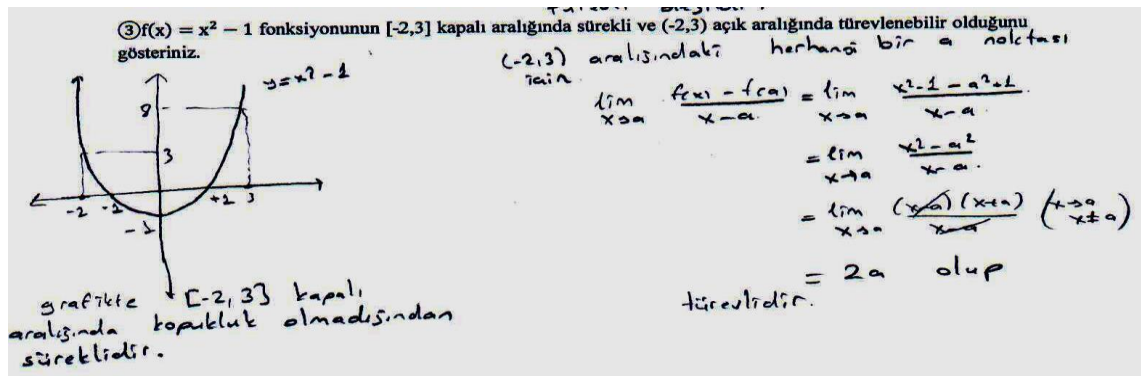 ③f(x) = x² − 1 fonksiyonunun [-2,3] kapalı aralığında sürekli ve (-2,3) açık aralığında türevlenebilir olduğunu
gösteriniz.
y=x²-1
8
3
-2 -1 +1 3
-1
grafikte [-2,3] kapalı
aralığında kopukluk olmadığından
süreklidir.
(-2,3) aralığındaki herhangi bir a noktası
için
lim x→a f(x)-f(a) / x-a = lim x→a x²-1-a²+1 / x-a
= lim x→a x²-a² / x-a
= lim x→a (x-a)(x+a) / x-a (x→a x≠a)
= 2a olup
türevlidir.